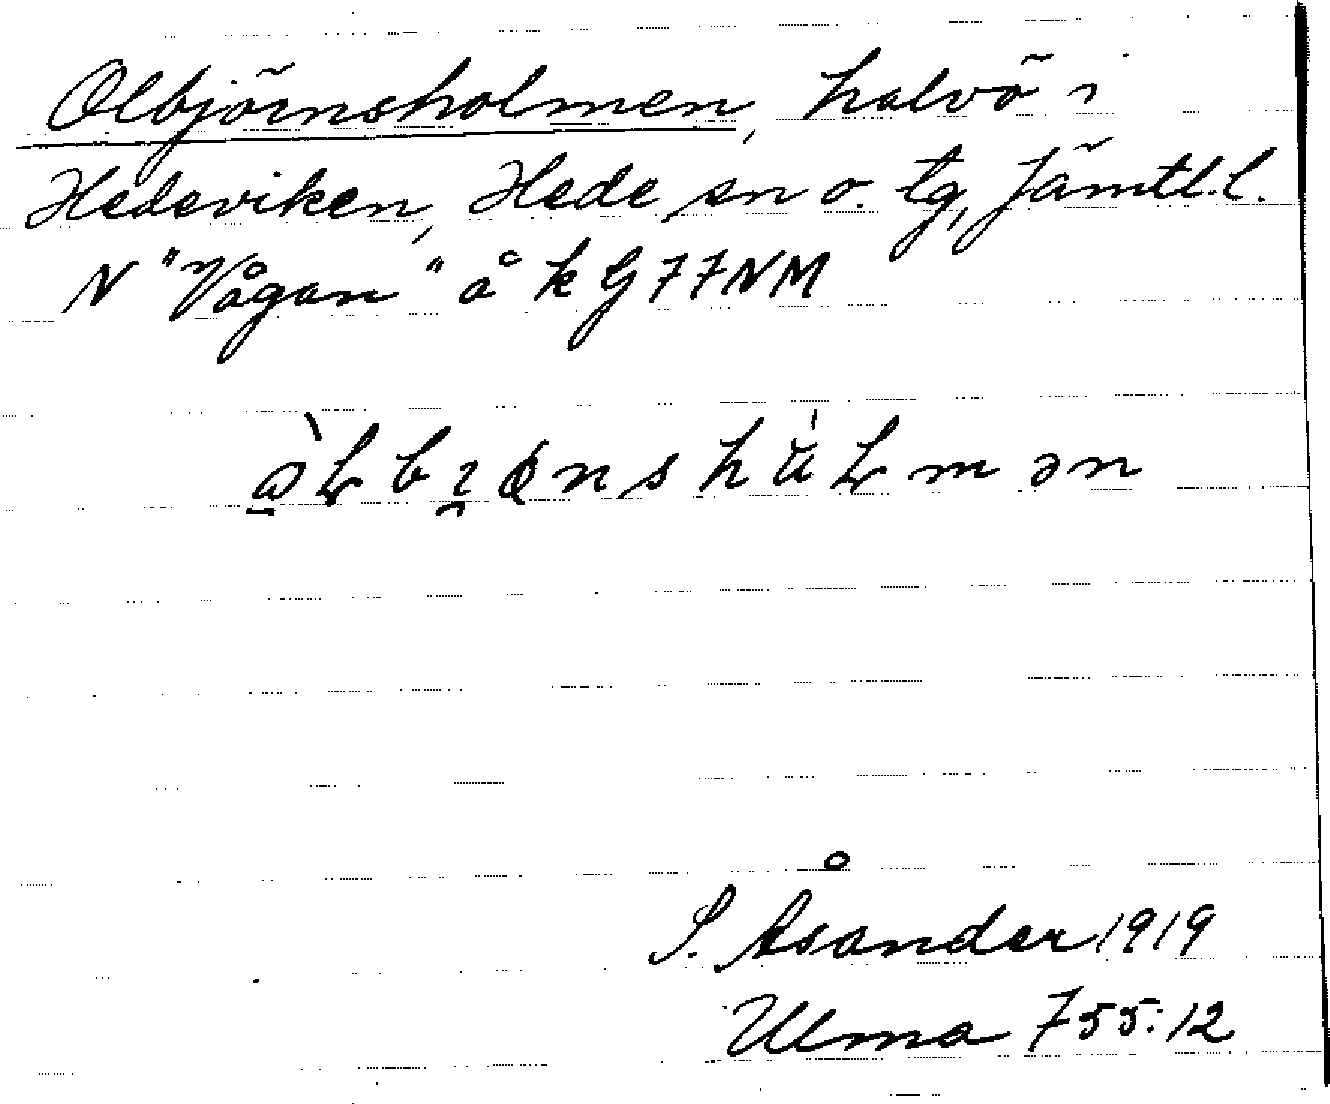 Olbjörnsholmen, halvö i
Hedeviken, Hede sn o. tg, Jämtl. l.
N "Vågan" å k G 77 NM
S. Åsander 1919
Ulma 755:12